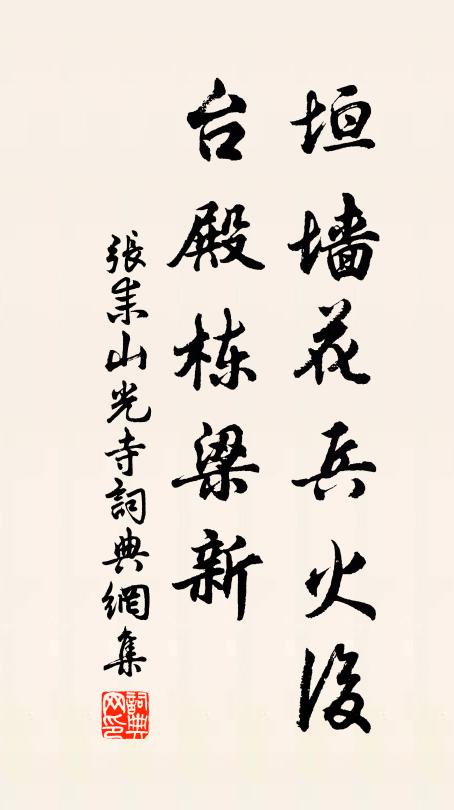 垣墙花兵火后
台殿栋梁新
張耒山光寺詞典網集
詞典网印